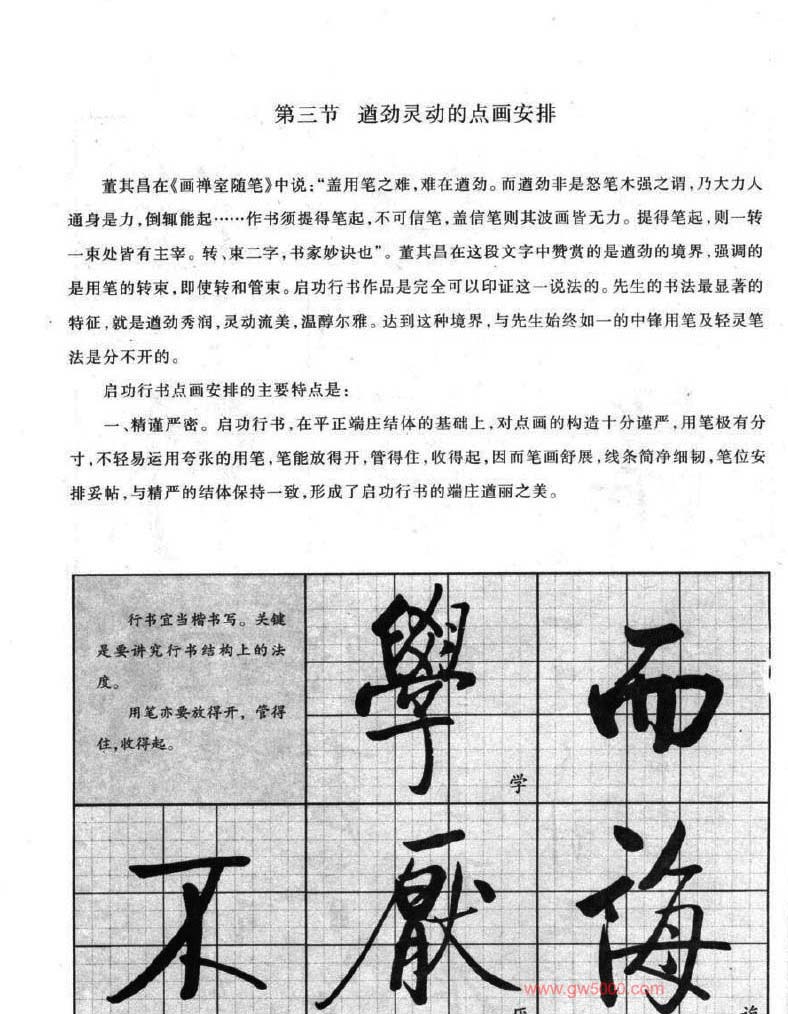 第三节 遒劲灵动的点画安排
董其昌在《画禅室随笔》中说：“盖用笔之难，难在遒劲。而遒劲非是怒笔木强之谓，乃大力人
通身是力，倒辄能起……作书须提得笔起，不可信笔，盖信笔则其波画皆无力。提得笔起，则一转
一束处皆有主宰。转、束二字，书家妙诀也”。董其昌在这段文字中赞赏的是遒劲的境界，强调的
是用笔的转束，即使转和管束。启功行书作品是完全可以印证这一说法的。先生的书法最显著的
特征，就是遒劲秀润，灵动流美，温醇尔雅。达到这种境界，与先生始终如一的中锋用笔及轻灵笔
法是分不开的。
启功行书点画安排的主要特点是：
一、精谨严密。启功行书，在平正端庄结体的基础上，对点画的构造十分谨严，用笔极有分
寸，不轻易运用夸张的用笔，笔能放得开，管得住，收得起，因而笔画舒展，线条简净细韧，笔位安
排妥帖，与精严的结体保持一致，形成了启功行书的端庄遒丽之美。
行书宜当楷书写。关键
是要讲究行书结构上的法
度。
用笔亦要放得开，管得
住，收得起。
學
学
而
不
厭
誨
www.gw5000.com